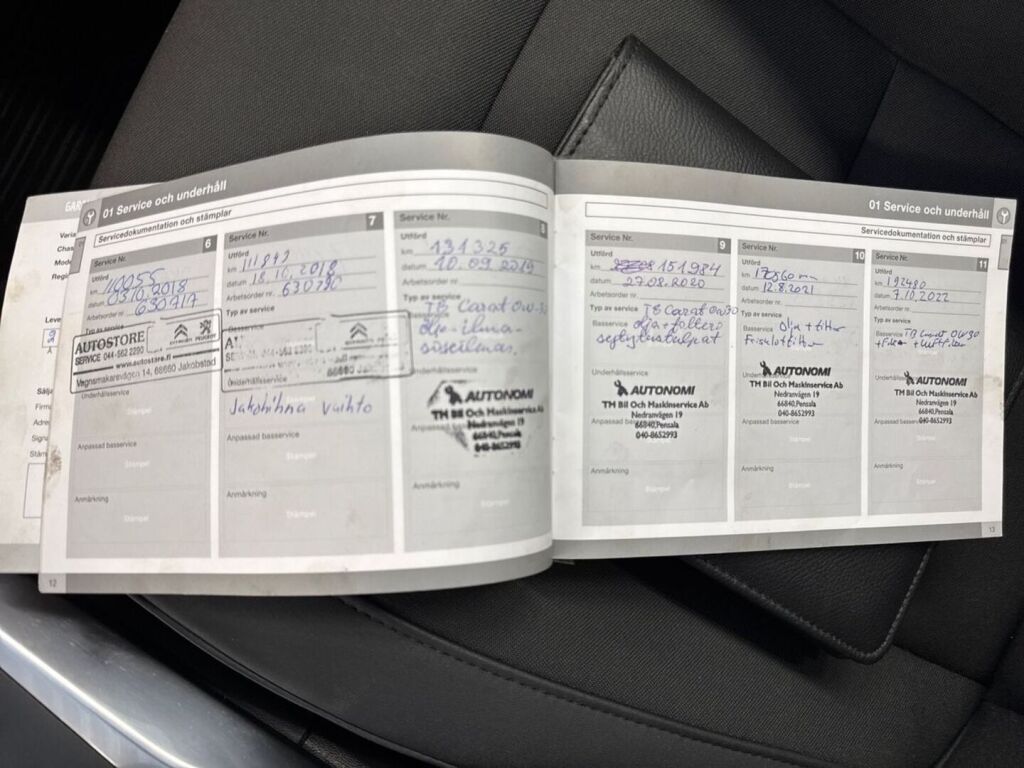 GAR
Varia
Chas
Mode
Regi
Leve
2
Å
Sälj
Firm
Adre
Sign
Stäm
01 Service och underhåll
Servicedokumentation och stämplar
Service Nr. 6
Utförd
km 110055
datum 03.10.2018
Arbetsorder nr. 630717
Typ av service
AUTOSTORE CITROËN PEUGEOT
SERVICE 044-562 2290
www.autostore.fi
Vagnsmakarevägen 14, 68660 Jakobstad
Underhållsservice
Stämpel
Anpassad basservice
Stämpel
Anmärkning
Stämpel
12
Service Nr. 7
Utförd
km 111842
datum 18.10.2018
Arbetsorder nr. 630790
Typ av service
68660 Jakobstad
Underhållsservice
Jakohihna vaihto
Anpassad basservice
Stämpel
Anmärkning
Stämpel
Service Nr. 8
Utförd
131325
10.09.2019
Typ av service
TB Carat 0W-30
öljy-ilma-
AUTONOMI
TM Bil Och Maskinservice Ab
Nedranvägen 19
66840, Pensala
040-8652993
Anpassad
Anmärkning
Stämpel
01 Service och underhåll
Servicedokumentation och stämplar
Service Nr. 9
Utförd
km 151984
datum 27.08.2020
Arbetsorder nr.
Typ av service
TB Carat 0W30
Basservice
Underhållsservice
AUTONOMI
TM Bil Och Maskinservice Ab
Nedranvägen 19
66840, Pensala
040-8652993
Anpassad
Anmärkning
Stämpel
Service Nr. 10
Utförd
km
datum 12.8.2021
Arbetsorder nr.
Typ av service
Basservice Olja + filter
Friskluftfilter
Underhållsservice
AUTONOMI
TM Bil Och Maskinservice Ab
Nedranvägen 19
66840, Pensala
040-8652993
Anpassad basservice
Stämpel
Anmärkning
Stämpel
Service Nr. 11
Utförd
km 192480
datum 7.10.2022
Arbetsorder nr.
Typ av service
Basservice TB Carat 0W30
Underhållsservice
AUTONOMI
TM Bil Och Maskinservice Ab
Nedranvägen 19
66840, Pensala
040-8652993
Anpassad basservice
Stämpel
Anmärkning
Stämpel
13